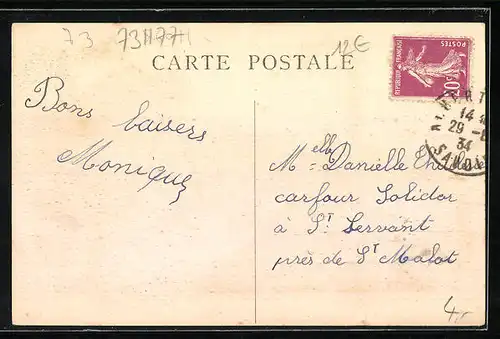 73
73H77H
12€
CARTE POSTALE
POSTES
REPUBLIQUE FRANÇAISE
20c
14
29
34
SAVOIE
Bons baisers
Monique
Melle Danielle
carfour Solidor
à St Servant
près de St Malot
4